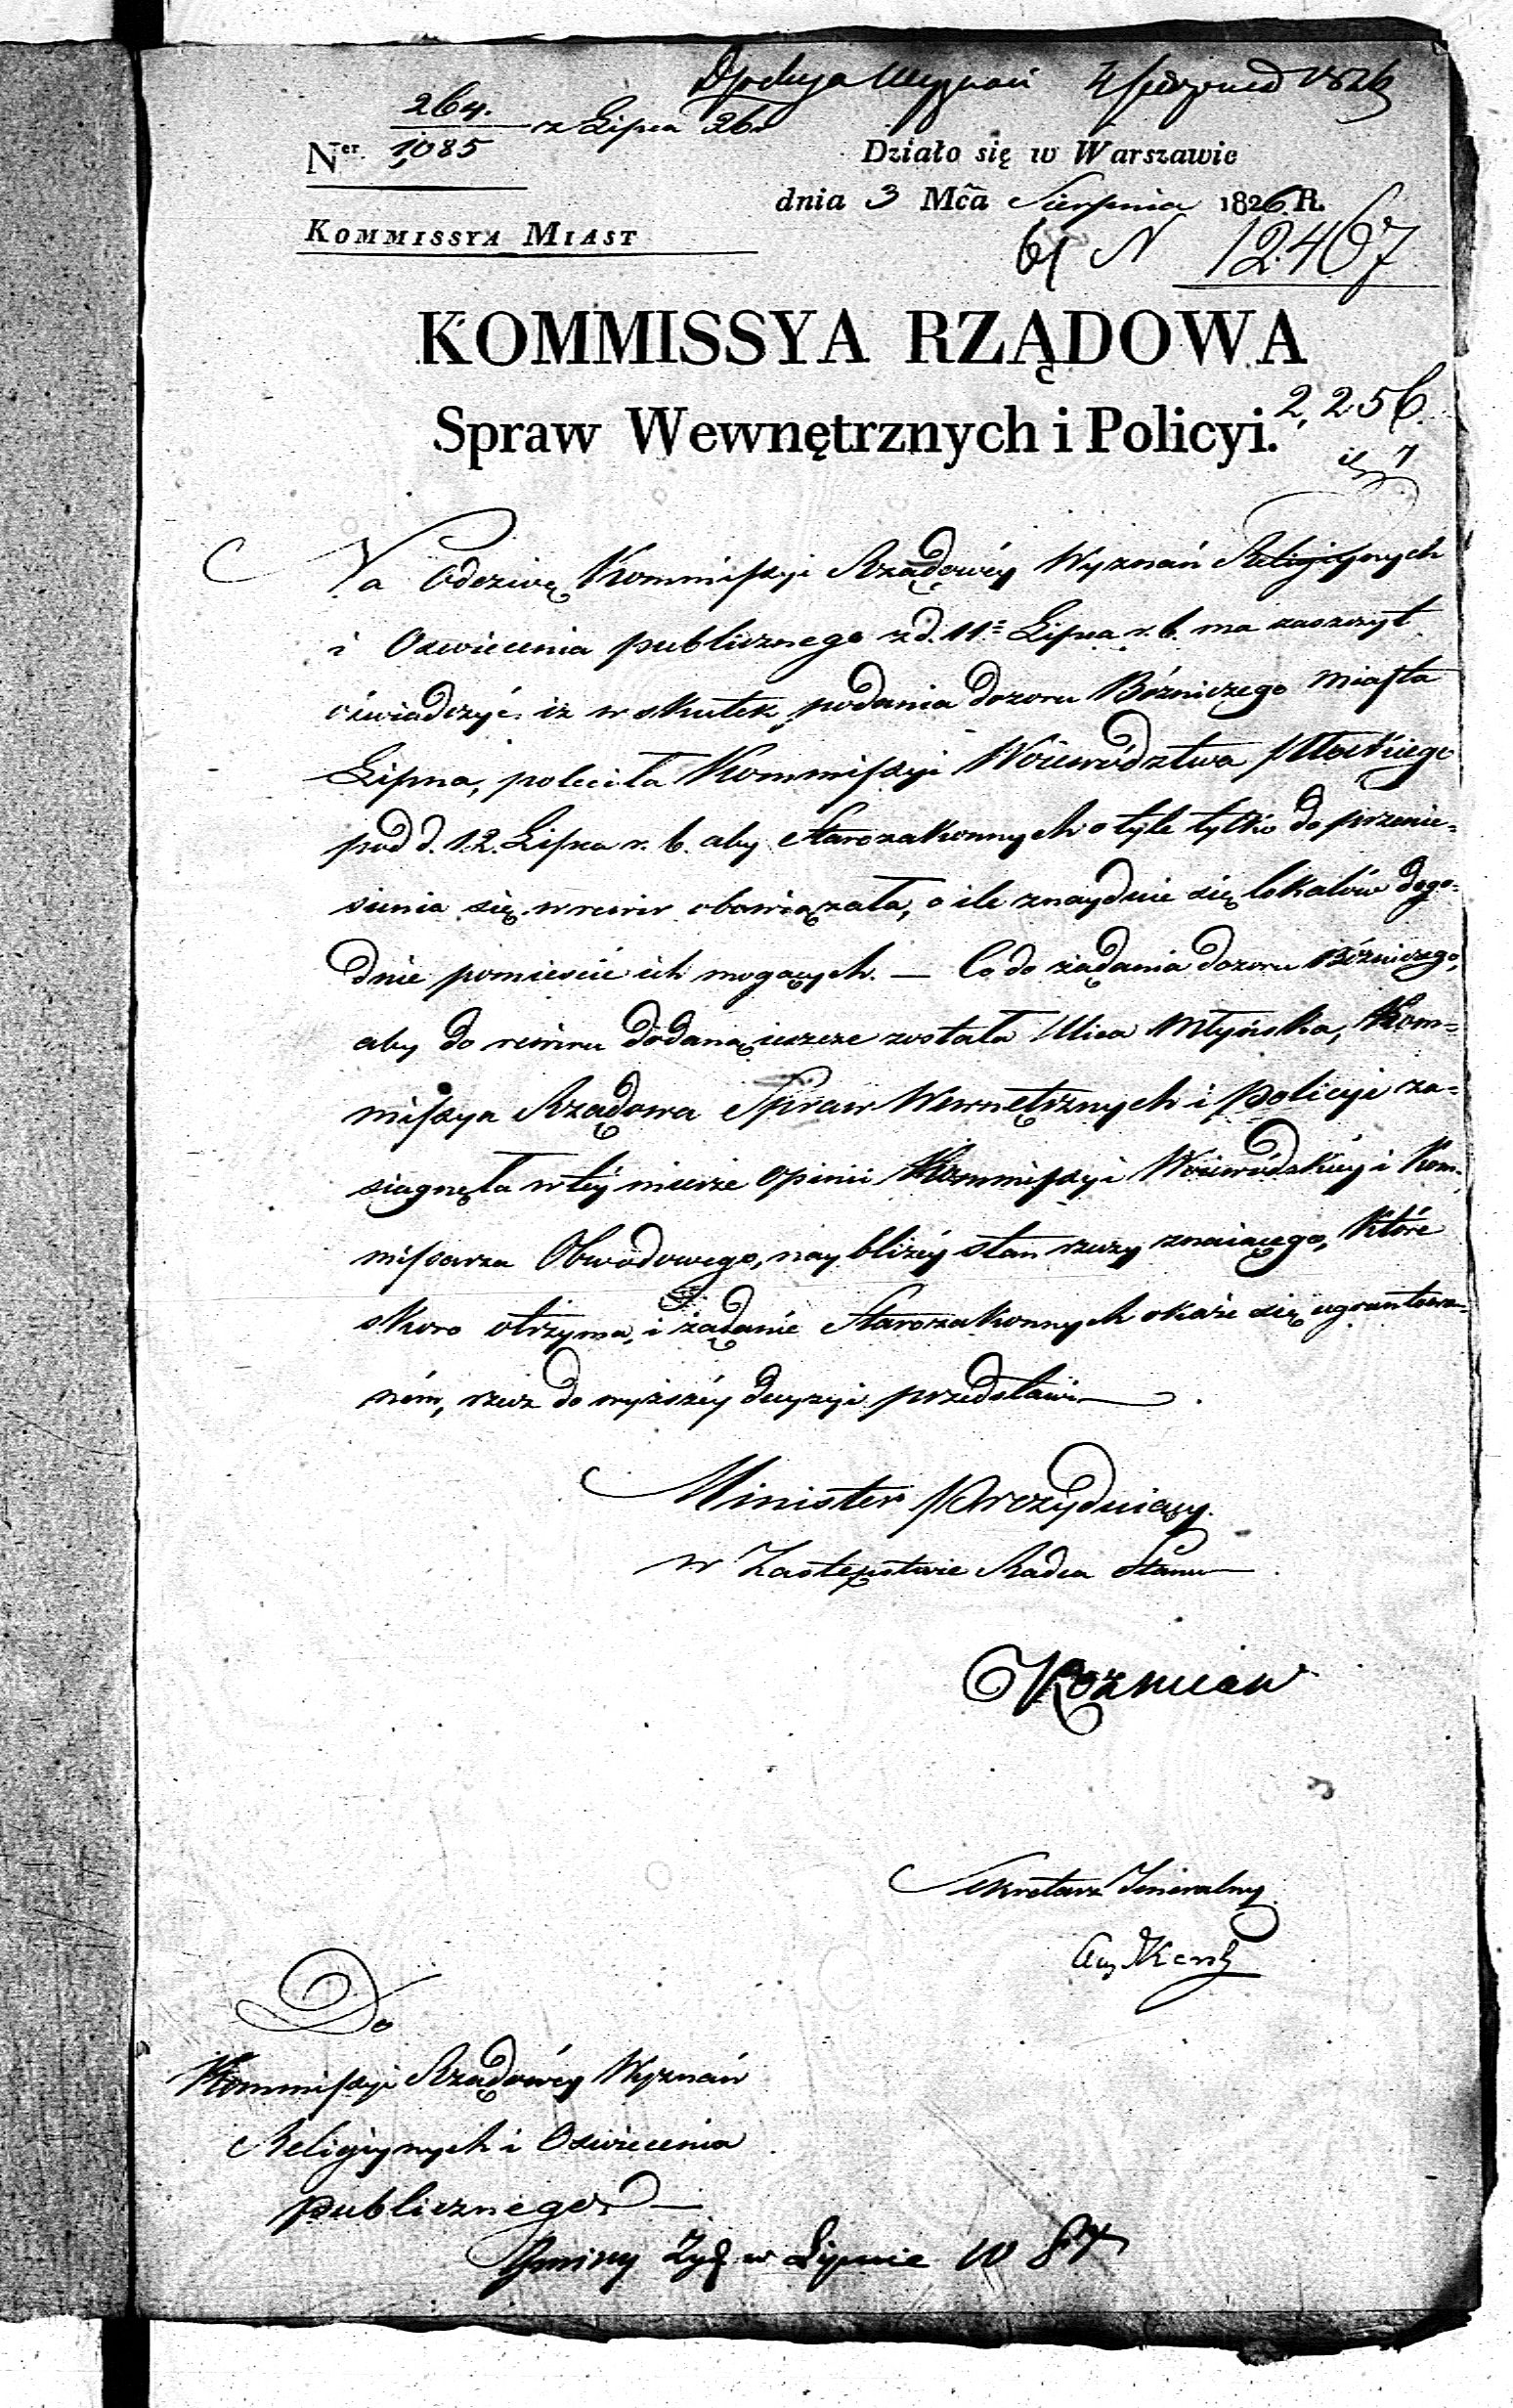 4 sierpnia 1826
264.
1,085 z Lipca 26.
Ner.
Działo się w Warszawie
dnia 3 Mca Sierpnia 1826. R.
KOMMISSYA MIAST
N 12467
KOMMISSYA RZĄDOWA
2,256.
Spraw Wewnętrznych i Policyi.
Na Odezwę Kommissyi Rządowéy Wyznań Religiynych
i Oswiecenia publicznego z d. 11= Lipca r. b. ma zaszczyt
oświadczyć, iż w skutek podania dozoru Bóżniczego Miasta
Lipna, poleciła Kommissyi Woiewództwa Płockiego
pod d. 12. Lipca r. b. aby Starozakonnych o tyle tylko do przenie=
sienia się w rewir obowiązała, o ile znaydzie się lokalów dogo=
dnie pomieścić ich mogących. — Co do żądania dozoru Bóżniczego,
aby do rewiru dodaną ieszcze została Ulica Młyńska, Kom=
missya Rządowa Spraw Wewnętrznych i Policyi za=
siągnęła w téy mierze Opinii Kommissyi Woiewódzkiéy i Kom=
missarza Obwodowego, naybliżéy stan rzeczy znaiącego, które
skoro otrzyma, i żądanie Starozakonnych okaże się ugruntowa=
ném, rzecz do wyższéy decyzyi przedstawi —.
Minister Prezyduiący.
w Zastępstwie Radca Stanu
Kozmian
Sekretarz Jeneralny
Do
Kommissyi Rządowéy Wyznań
Religiynych i Oswiecenia
publicznego —
Gminy Żyd. w Lipnie W 87